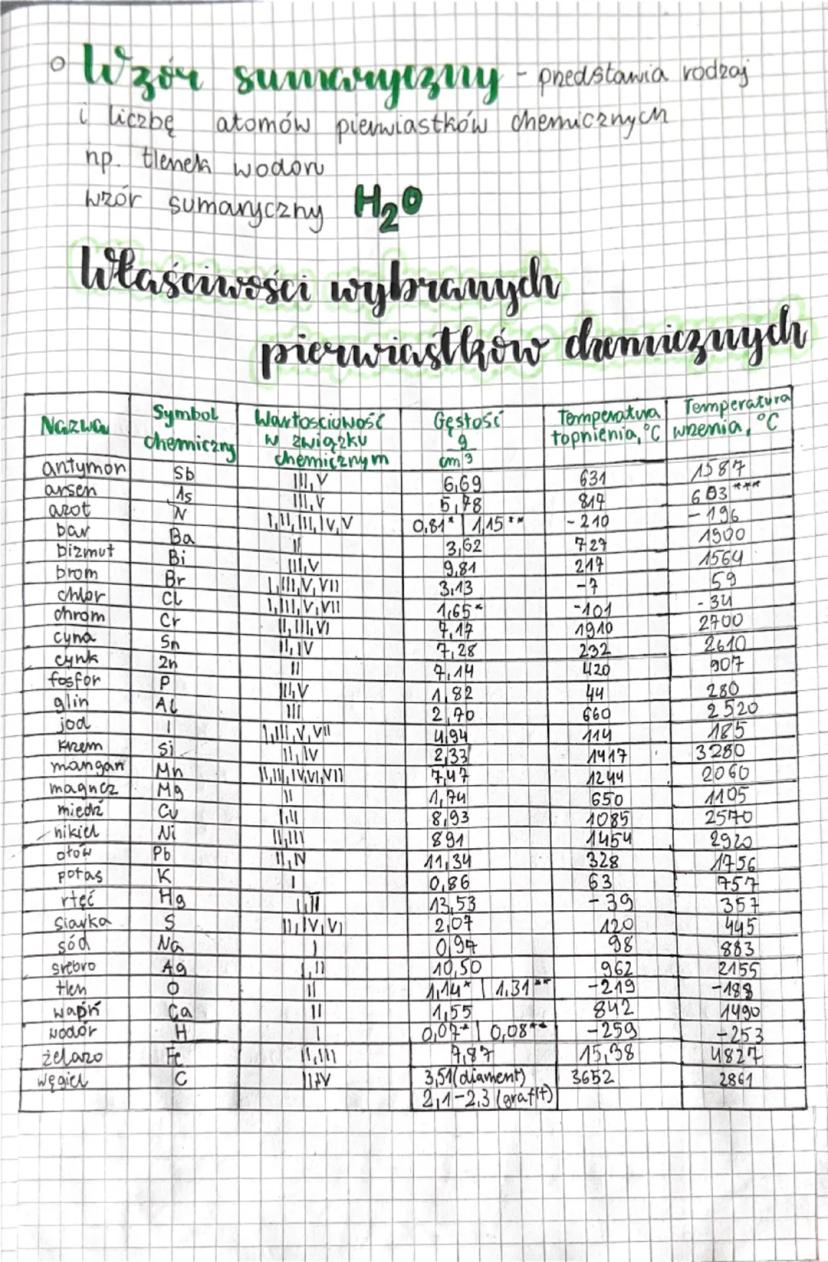 Wzór sumaryczny - przedstawia rodzaj
i liczbę atomów pierwiastków chemicznych
np. tlenek wodoru
wzór sumaryczny H₂O
Właściwości wybranych
pierwiastków chemicznych
Nazwa | Symbol chemiczny | Wartościowość w związku chemicznym | Gęstość g/cm³ | Temperatura topnienia, °C | Temperatura wrzenia, °C
antymon Sb III, V 6,69 631 1587
arsen As III, V 5,78 817 603***
azot N I, II, III, IV, V 0,81* | 1,15** -210 -196
bar Ba II 3,62 727 1900
bizmut Bi III, V 9,81 217 1564
brom Br I, III, V, VII 3,13 -7 59
chlor Cl I, III, V, VII 1,65* -101 -34
chrom Cr II, III, VI 7,17 1910 2700
cyna Sn II, IV 7,28 232 2610
cynk Zn II 7,14 420 907
fosfor P III, V 1,82 44 280
glin Al III 2,70 660 2520
jod I I, III, V, VII 4,94 114 185
krzem Si II, IV 2,33 1417 3280
mangan Mn II, III, IV, VI, VII 7,47 1244 2060
magnez Mg II 1,74 650 1105
miedź Cu I, II 8,93 1085 2570
nikiel Ni II, III 891 1454 2920
ołów Pb II, IV 11,34 328 1756
potas K I 0,86 63 757
rtęć Hg I, II 13,53 -39 357
siarka S II, IV, VI 2,07 120 445
sód Na I 0,97 98 883
srebro Ag I, II 10,50 962 2155
tlen O II 1,14* | 1,31** -219 -188
wapń Ca II 1,55 842 1490
wodór H I 0,07* | 0,08** -259 -253
żelazo Fe II, III 7,87 15,38 4827
węgiel C II, IV 3,51 (diament) 3652 2861
2,1-2,3 (grafit)